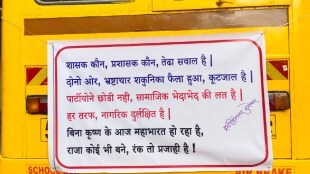 शासक कौन, प्रशासक कौन, तेढा सवाल है |
दोनो ओर, भ्रष्टाचार शकुनिका फैला हुआ, कूटजाल है |
पार्टीयोने छोडी नही, सामाजिक भेदाभेद की लत है |
हर तरफ, नागरिक दुर्लक्षित है |
बिना कृष्ण के आज महाभारत हो रहा है,
राजा कोई भी बने, रंक तो प्रजाही है !
SCHOOL
AIR BRAKE